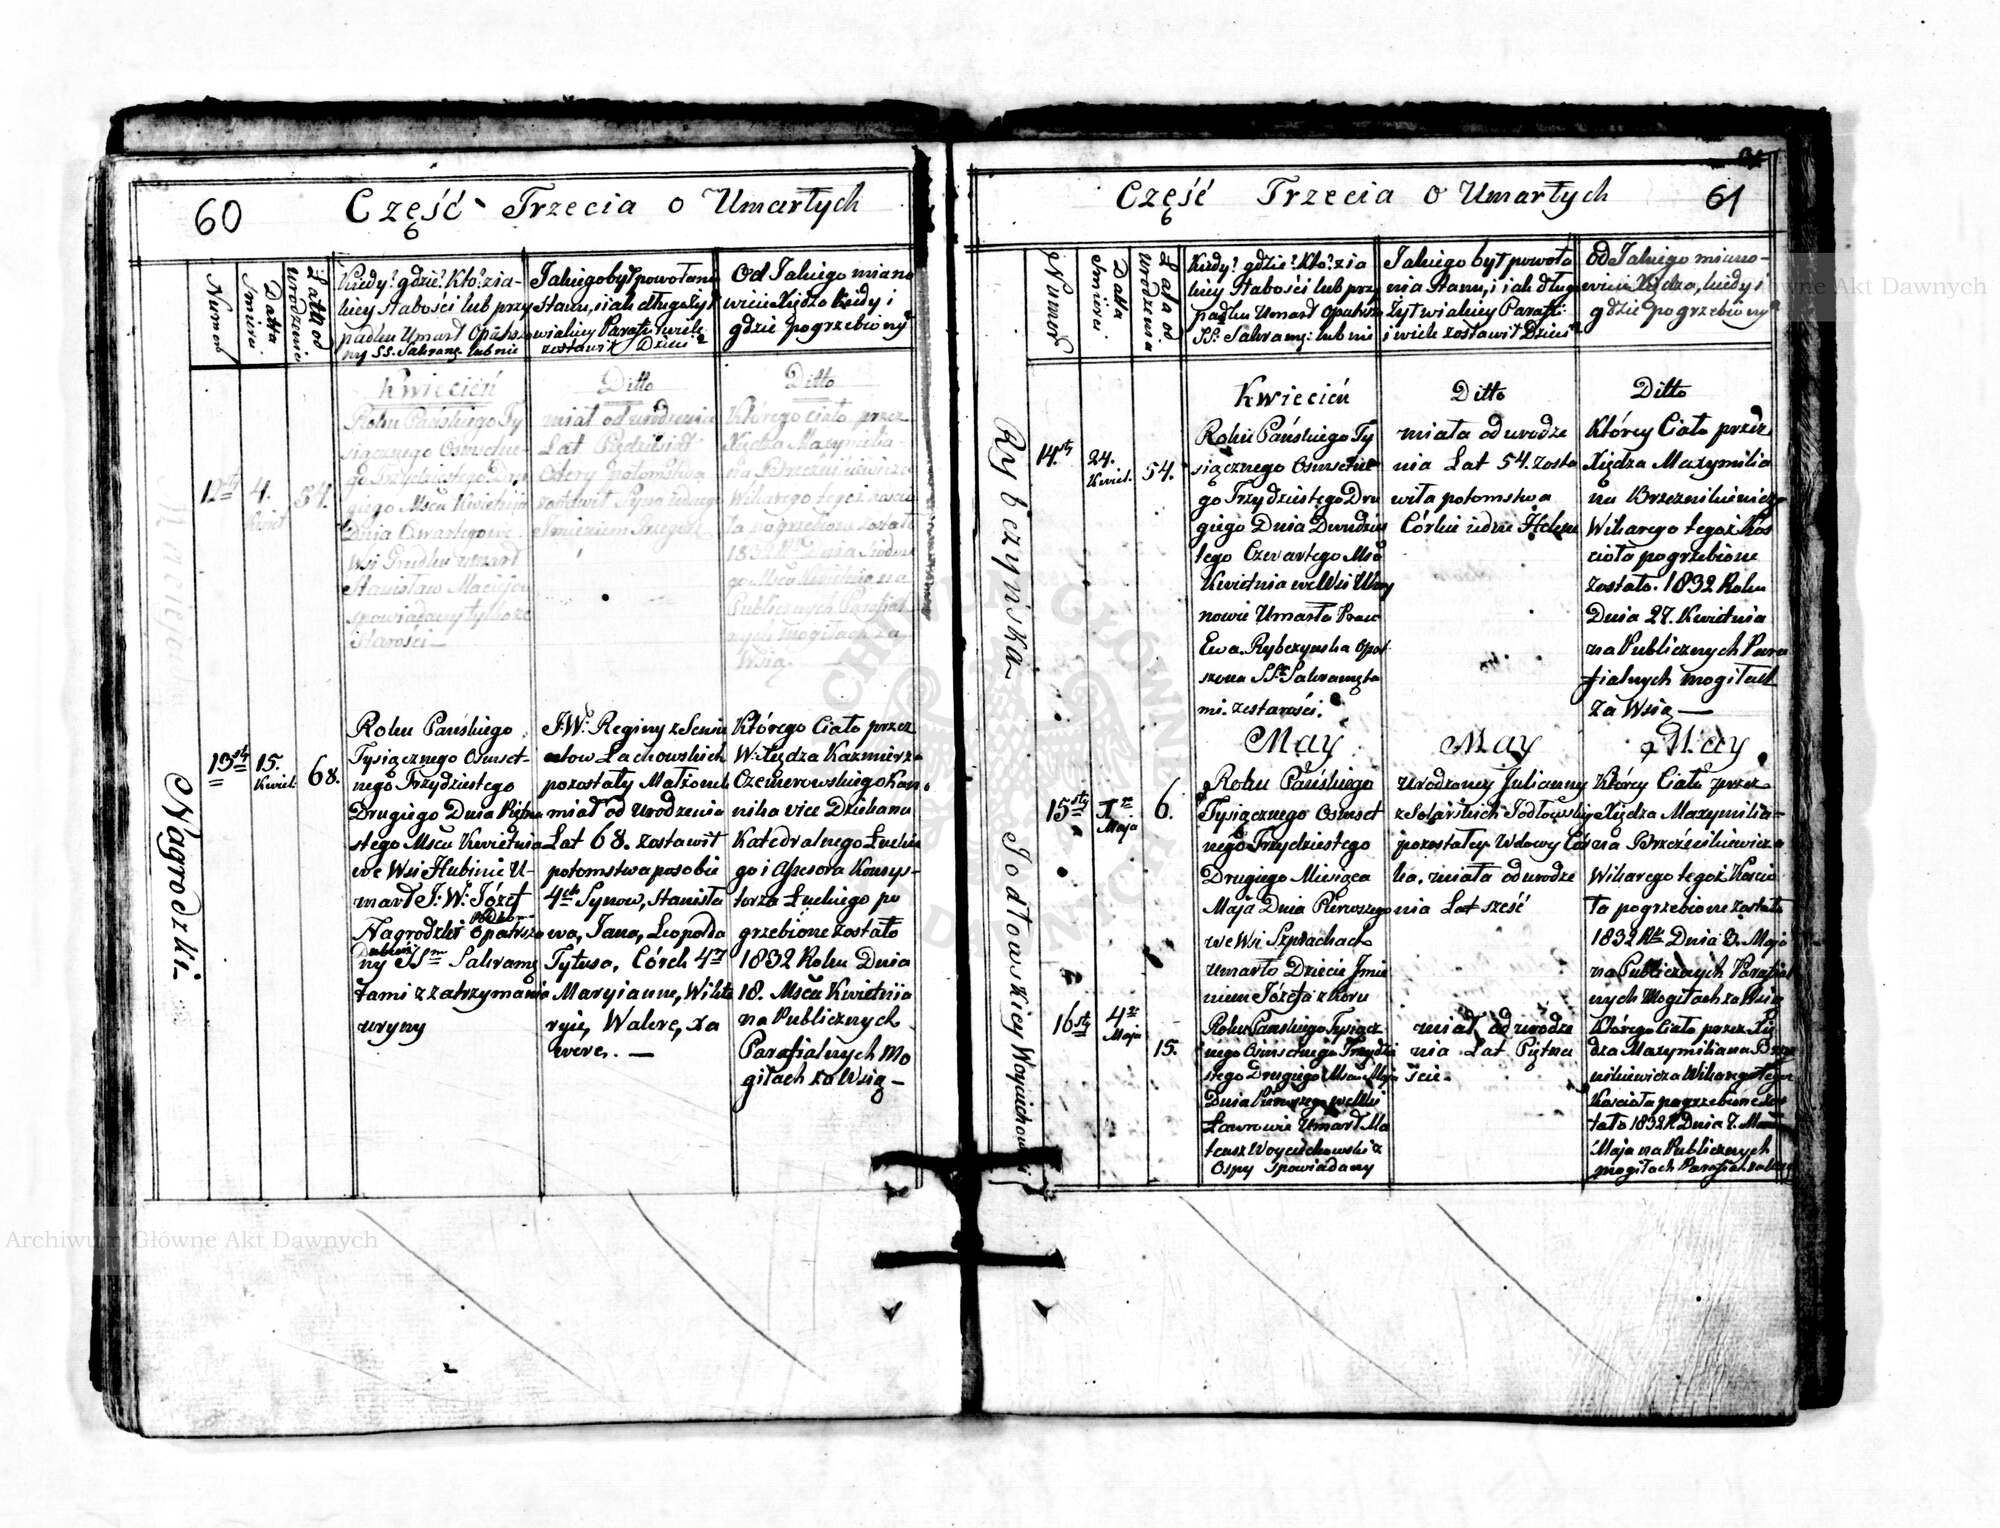 60 Część Trzecia o Umarłych
Numer
Datta Śmierci
Latta od Urodzenia
Kiedy? gdzie? Kto? z ia-
kiey słabości lub przy
padku Umarł Opatrzo
ny SS. Sakram: lub nie
Jakiego był powołania
Stanu, i iak długo żył
w ialney Parafii i wiele
zostawił Dzieci
Od Jakiego miano
wicie Xiędza kiedy i
gdzie pogrzebiony
Kwiecień
Ditto
Ditto
12sty
4. Kwiet
54.
Roku Pańskiego Ty
siącznego Osmsetne-
go Trzydziestego Dru
giego Mscu Kwietnia
Dnia Czwartego we
Wsi Gródku umarł
Stanisław
spowiadany tylko ze
starości —
miał od urodzenia
Lat Pięćdziesiąt
Cztery potomstwa
zostawił Syna iednego
Imieniem
Którego ciało przez
Xiędza Maxymilia-
na Brzezińkiewicza
Wikarego tegoż kościo
ła pogrzebione zostało
1832 Rku Dnia Siódme
go Mscu Kwietnia na
Publicznych Parafial
nych mogiłach za
Wsią —
Nagrodzki.
13sty
15. Kwiet.
68.
Roku Pańskiego
Tysiącznego Osmset-
nego Trzydziestego
Drugiego Dnia Piętna
stego Mscu Kwietnia
we Wsi Hubinie U-
marł J. W. Józef
Nagrodzki Opatrzo
ny SSmi Sakramę
tami z zatrzymania
uryny
J.W. Reginy z Senu
atow Lachowskich
pozostały Małżonek
miał od Urodzenia
Lat 68. zostawił
potomstwa po sobie
4ch Synow, Stanisła
wa, Jana, Leopolda
Tytusa, Córek 4ry
Maryianne, Wikto
ryię, Walerę, Xa
werę. —
Którego Ciało przez
W: Xiędza Kazmierza
Czemerowskiego Kano
nika vice Dziekana
Katedralnego Łuckie
go i Assesora Konsys-
torza Łuckiego po
grzebione zostało
1832 Roku Dnia
18. Mscu Kwietnia
na Publicznych
Parafialnych Mo
giłach za Wsią —
Część Trzecia o Umarłych 61
Numer
Datta Śmierci.
Lata od Urodzenia
Kiedy? gdzie? Kto? z ia
kiey słabości lub przy
padku Umarł Opatrzo
SS: Sakramę: lub nie
Jakiego był powoła
nia Stanu, i iak dług
żył w ialney Parafii
i wiele zostawił Dzieci
Od Jakiego miano-
wicie Xiędza, kiedy i
gdzie pogrzebiony
Kwiecień
Ditto
Ditto
Rybczyńska
14.sty
24. Kwiet.
54.
Roku Pańskiego Ty
siącznego Osmsetne
go Trzydziestego Dru
giego Dnia Dwudzies
tego Czwartego Mscu
Kwietnia we Wsi Uhry
nowie Umarła Prac
Ewa Rybczynska Opat
rzona SS. Sakramęta
mi. ze starości.
miała od urodze
nia Lat 54. zosta
wiła potomstwa
Córkie iedne Helene
Którey Ciało przez
Xiędza Maxymilia
na Brzezinkiewicza
Wikarego tegoż Kos
cioła pogrzebione
zostało. 1832 Roku
Dnia 27. Kwietnia
na Publicznych Para
fialnych mogiłach
za Wsią —
May
May
May
Jodłowskiey
15sty
1go Maja
6.
Roku Pańskiego
Tysiącznego Osmset
nego Trzydziestego
Drugiego Miesiąca
Maja Dnia Pierwszego
we Wsi Szprachach
umarło Dziecie Jmie
niem Józefa z koru
Urodzoney Julianny
z Solarskich Jodłowskiey
pozostałey Wdowy Cór
ka. miała od urodze
nia Lat sześć
Którey Ciało przez
Xiędza Maxymilia-
na Brzezińkiewicza
Wikarego tegoż Kościo
ła pogrzebione zostało
1832 Rku Dnia 3. Maja
na Publicznych Parafial
nych Mogiłach za Wsią
Woyciechowski
16sty
4go Maja
15.
Roku Pańskiego Tysiącz
nego Osmsetnego Trzydzie
stego Drugiego Mscu Maja
Dnia Pierwszego we Wsi
Ławrowie Umarł Ma
teusz Woyciechowski z
Ospy Spowiadany
miał od urodze
nia Lat Piętna
ście.
Którego Ciało przez Xię
dza Maxymiliana Brze
zinkiewicza Wikarego tegoż
Kościoła pogrzebione zos
tało 1832 R. Dnia 7.
Maja na Publicznych
mogiłach Parafial za Wsią
Archiwum Główne Akt Dawnych
Archiwum Główne Akt Dawnych